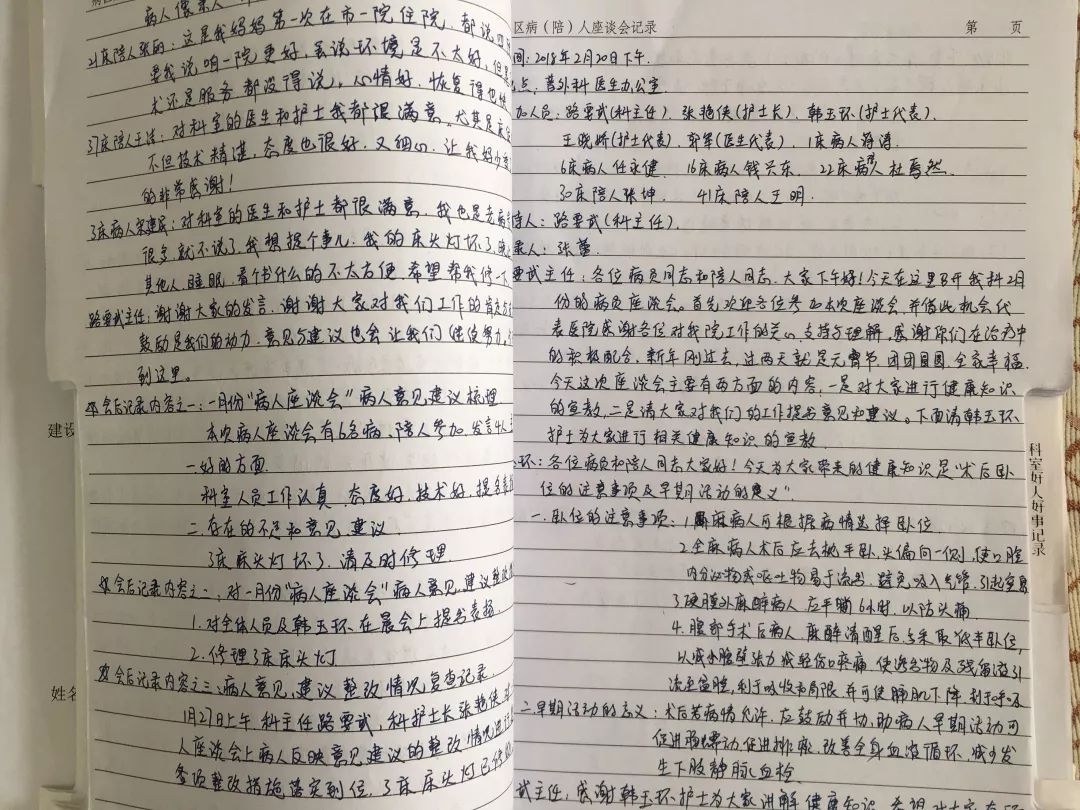 病人像亲人一
21床陪人张的：这是我妈妈第一次在市一院住院，都说四
要我说，咱一院更好，虽说环境是不太好，但是
术还是服务都没得说，心情好，恢复得也快
31床陪人王洁：对科室的医生和护士我都很满意，尤其是床
不但技术精湛，态度也很好，又细心，让我好少受
的非常感谢！
3床病人宋建民：对科室的医生和护士都很满意，我也是老病号
很多，就不说了，我想提个事儿，我的床头灯坏了，晚上
其他人睡眠，看个书什么的不太方便，希望帮我修一下
路要武主任：谢谢大家的发言，谢谢大家对我们工作的肯定与
鼓励是我们的动力，意见与建议也会让我们继续努力，
到这里。
会后记录内容之一：一月份“病人座谈会”病人意见建议梳理
本次病人座谈会有6名病、陪人参加，发言4人
一.好的方面
科室人员工作认真，态度好，技术好，提名表扬
二.存在的不足和意见、建议
3床床头灯坏了，请及时修理
会后记录内容之二，对一月份“病人座谈会”病人意见、建议整改
1.对全体人员及韩玉环在晨会上提名表扬
2.修理3床床头灯
会后记录内容之三：病人意见、建议整改情况复查记录
1月27日上午，科主任路要武，科护士长张艳侠对
人座谈会上病人反映意见建议的整改情况进行
各项整改措施落实到位，3床床头灯已修
建设
姓名
区病（陪）人座谈会记录
第 页
间：2018年2月20日下午
点：普外科医生办公室
加人员：路要武(科主任)、张艳侠(护士长)、韩玉环(护士代表)、
王晓娇(护士代表)、郭军(医生代表)、1床病人蒋涛
6床病人任永健、16床病人钱兴东、22床病人陪杜嫣然、
30床陪人张坤、41床陪人王明
持人：路要武(科主任)
录人：张蕾
要武主任：各位病员同志和陪人同志，大家下午好！今天在这里召开我科2月
份的病员座谈会。首先欢迎各位参加本次座谈会，并借此机会代
表医院感谢各位对我院工作的关心、支持与理解，感谢你们在治疗中
的积极配合，新年刚过去，过两天就是元宵节，团团圆圆，全家幸福
今天这次座谈会主要有两方面的内容，一是对大家进行健康知识
的宣教，二是请大家对我们的工作提名意见和建议。下面请韩玉环
护士为大家进行相关健康知识的宣教
玉环：各位病员和陪人同志大家好！今天为大家带来的健康知识是“术后卧
位的注意事项及早期活动的意义”
一.卧位的注意事项：1.局麻病人可根据病情选择卧位
2.全麻病人术后应去枕平卧，头偏向一侧，使口腔
内分泌物或呕吐物易于流出，避免吸入气管，引起窒息
3.硬膜外麻醉病人应平躺6小时，以防头痛
4.腹部手术后病人麻醉清醒后应采取低半卧位，
以减小腹壁张力或轻伤口疼痛，使渗出物及残留液引
流至盆腔，利于吸收和局限，并可使膈肌下降，利于呼吸
二.早期活动的意义：术后若病情允许，应鼓励并协助病人早期活动，可
促进肠蠕动，促进排痰，改善全身血液循环，减少发
生下肢静脉血栓
武主任：感谢韩玉环护士为大家讲解健康知识，希望
科室好人好事记录